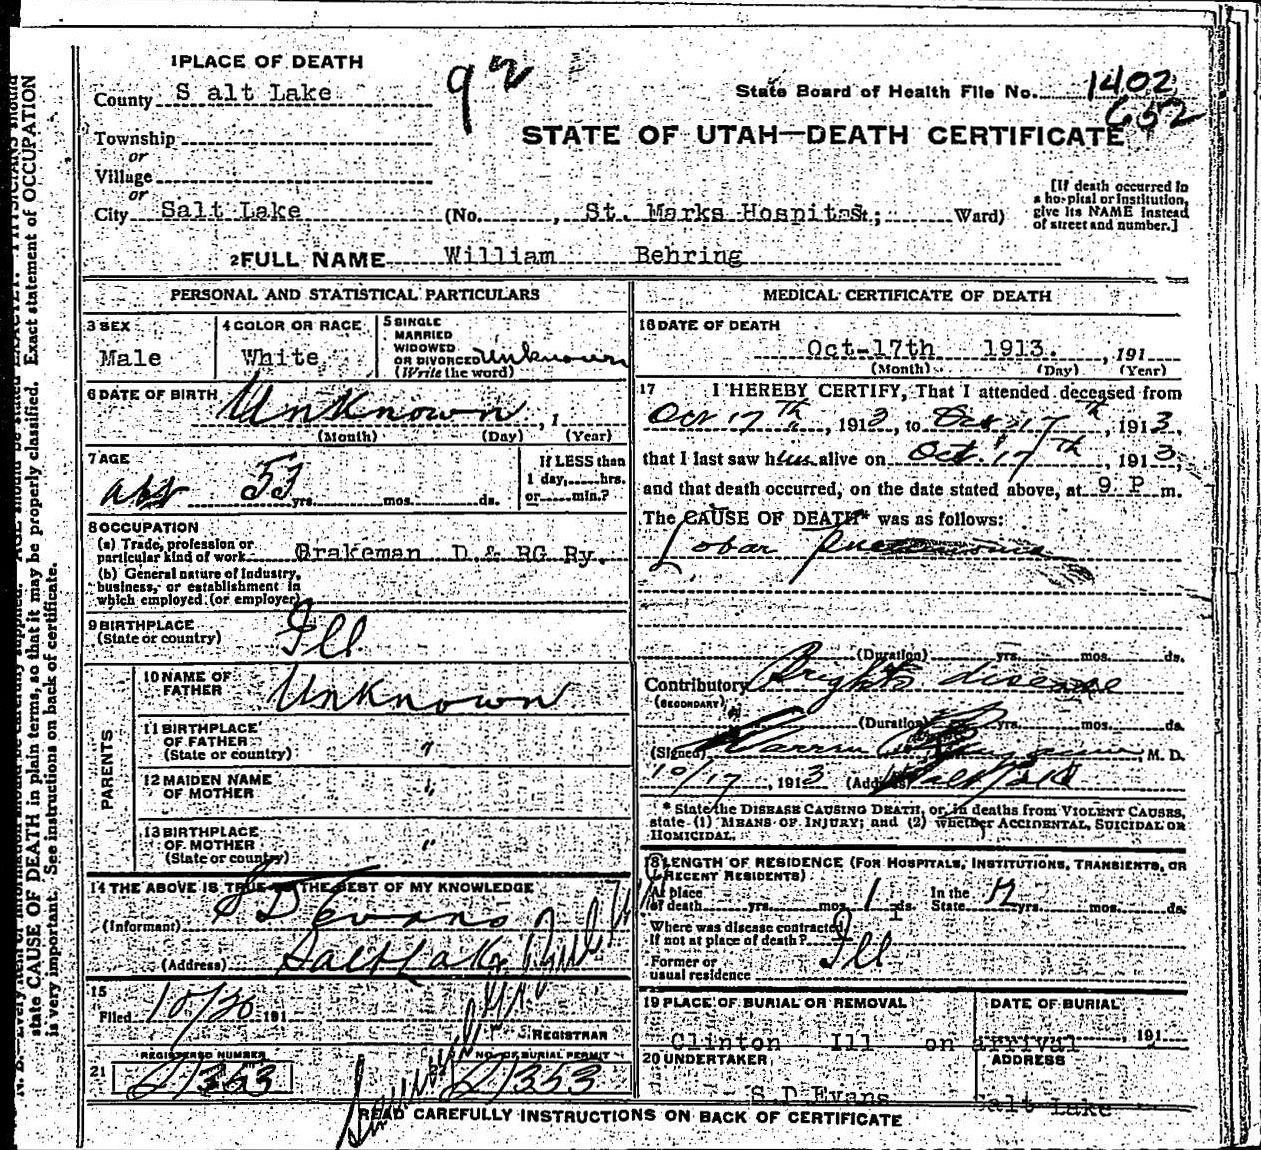 1 PLACE OF DEATH
County Salt Lake
92
State Board of Health File No. 1402
652
Township
or
STATE OF UTAH—DEATH CERTIFICATE
Village
or
City Salt Lake (No. , St. Marks Hospital St.; Ward)
[If death occurred in
a hospital or institution,
give its NAME instead
of street and number.]
2 FULL NAME William Behring
PERSONAL AND STATISTICAL PARTICULARS
3 SEX
Male
4 COLOR OR RACE
White
5 SINGLE
MARRIED
WIDOWED
OR DIVORCED Unknown
(Write the word)
6 DATE OF BIRTH Unknown , 1
(Month) (Day) (Year)
7 AGE
abt 53 yrs. mos. ds.
If LESS than
1 day, hrs.
or min.?
8 OCCUPATION
(a) Trade, profession or
particular kind of work Brakeman D & RG Ry.
(b) General nature of Industry,
business, or establishment in
which employed (or employer)
9 BIRTHPLACE
(State or country) Ill
PARENTS
10 NAME OF
FATHER Unknown
11 BIRTHPLACE
OF FATHER
(State or country) "
12 MAIDEN NAME
OF MOTHER "
13 BIRTHPLACE
OF MOTHER
(State or country) "
14 THE ABOVE IS TRUE TO THE BEST OF MY KNOWLEDGE
(Informant) S D Evans
(Address) Salt Lake
15
Filed 10/20 191
REGISTRAR
REGISTERED NUMBER
NO. OF BURIAL PERMIT
21 21353 21353
MEDICAL CERTIFICATE OF DEATH
16 DATE OF DEATH
Oct-17th 1913. , 191
(Month) (Day) (Year)
17 I HEREBY CERTIFY, That I attended deceased from
Oct 17th, 1913, to Oct 17th, 1913,
that I last saw him alive on Oct. 17th, 1913,
and that death occurred, on the date stated above, at 9 P m.
The CAUSE OF DEATH* was as follows:
Lobar pneumonia
(Duration) yrs. mos. ds.
Contributory Brights disease
(SECONDARY)
(Duration) yrs. mos. ds.
(Signed) Warren M. D.
10/17, 1913 (Address) Salt Lake
* State the DISEASE CAUSING DEATH, or, in deaths from VIOLENT CAUSES,
state (1) MEANS OF INJURY; and (2) whether ACCIDENTAL, SUICIDAL OR
HOMICIDAL.
18 LENGTH OF RESIDENCE (FOR HOSPITALS, INSTITUTIONS, TRANSIENTS, OR
RECENT RESIDENTS)
At place
of death yrs. mos. 1 ds.
In the
State 12 yrs. mos. ds.
Where was disease contracted,
If not at place of death?
Former or
usual residence Ill
19 PLACE OF BURIAL OR REMOVAL
Clinton Ill
DATE OF BURIAL
on arrival , 191
20 UNDERTAKER
S D Evans
ADDRESS
Salt Lake
READ CAREFULLY INSTRUCTIONS ON BACK OF CERTIFICATE
state CAUSE OF DEATH in plain terms, so that it may be properly classified. Exact statement of OCCUPATION
is very important. See instructions on back of certificate.